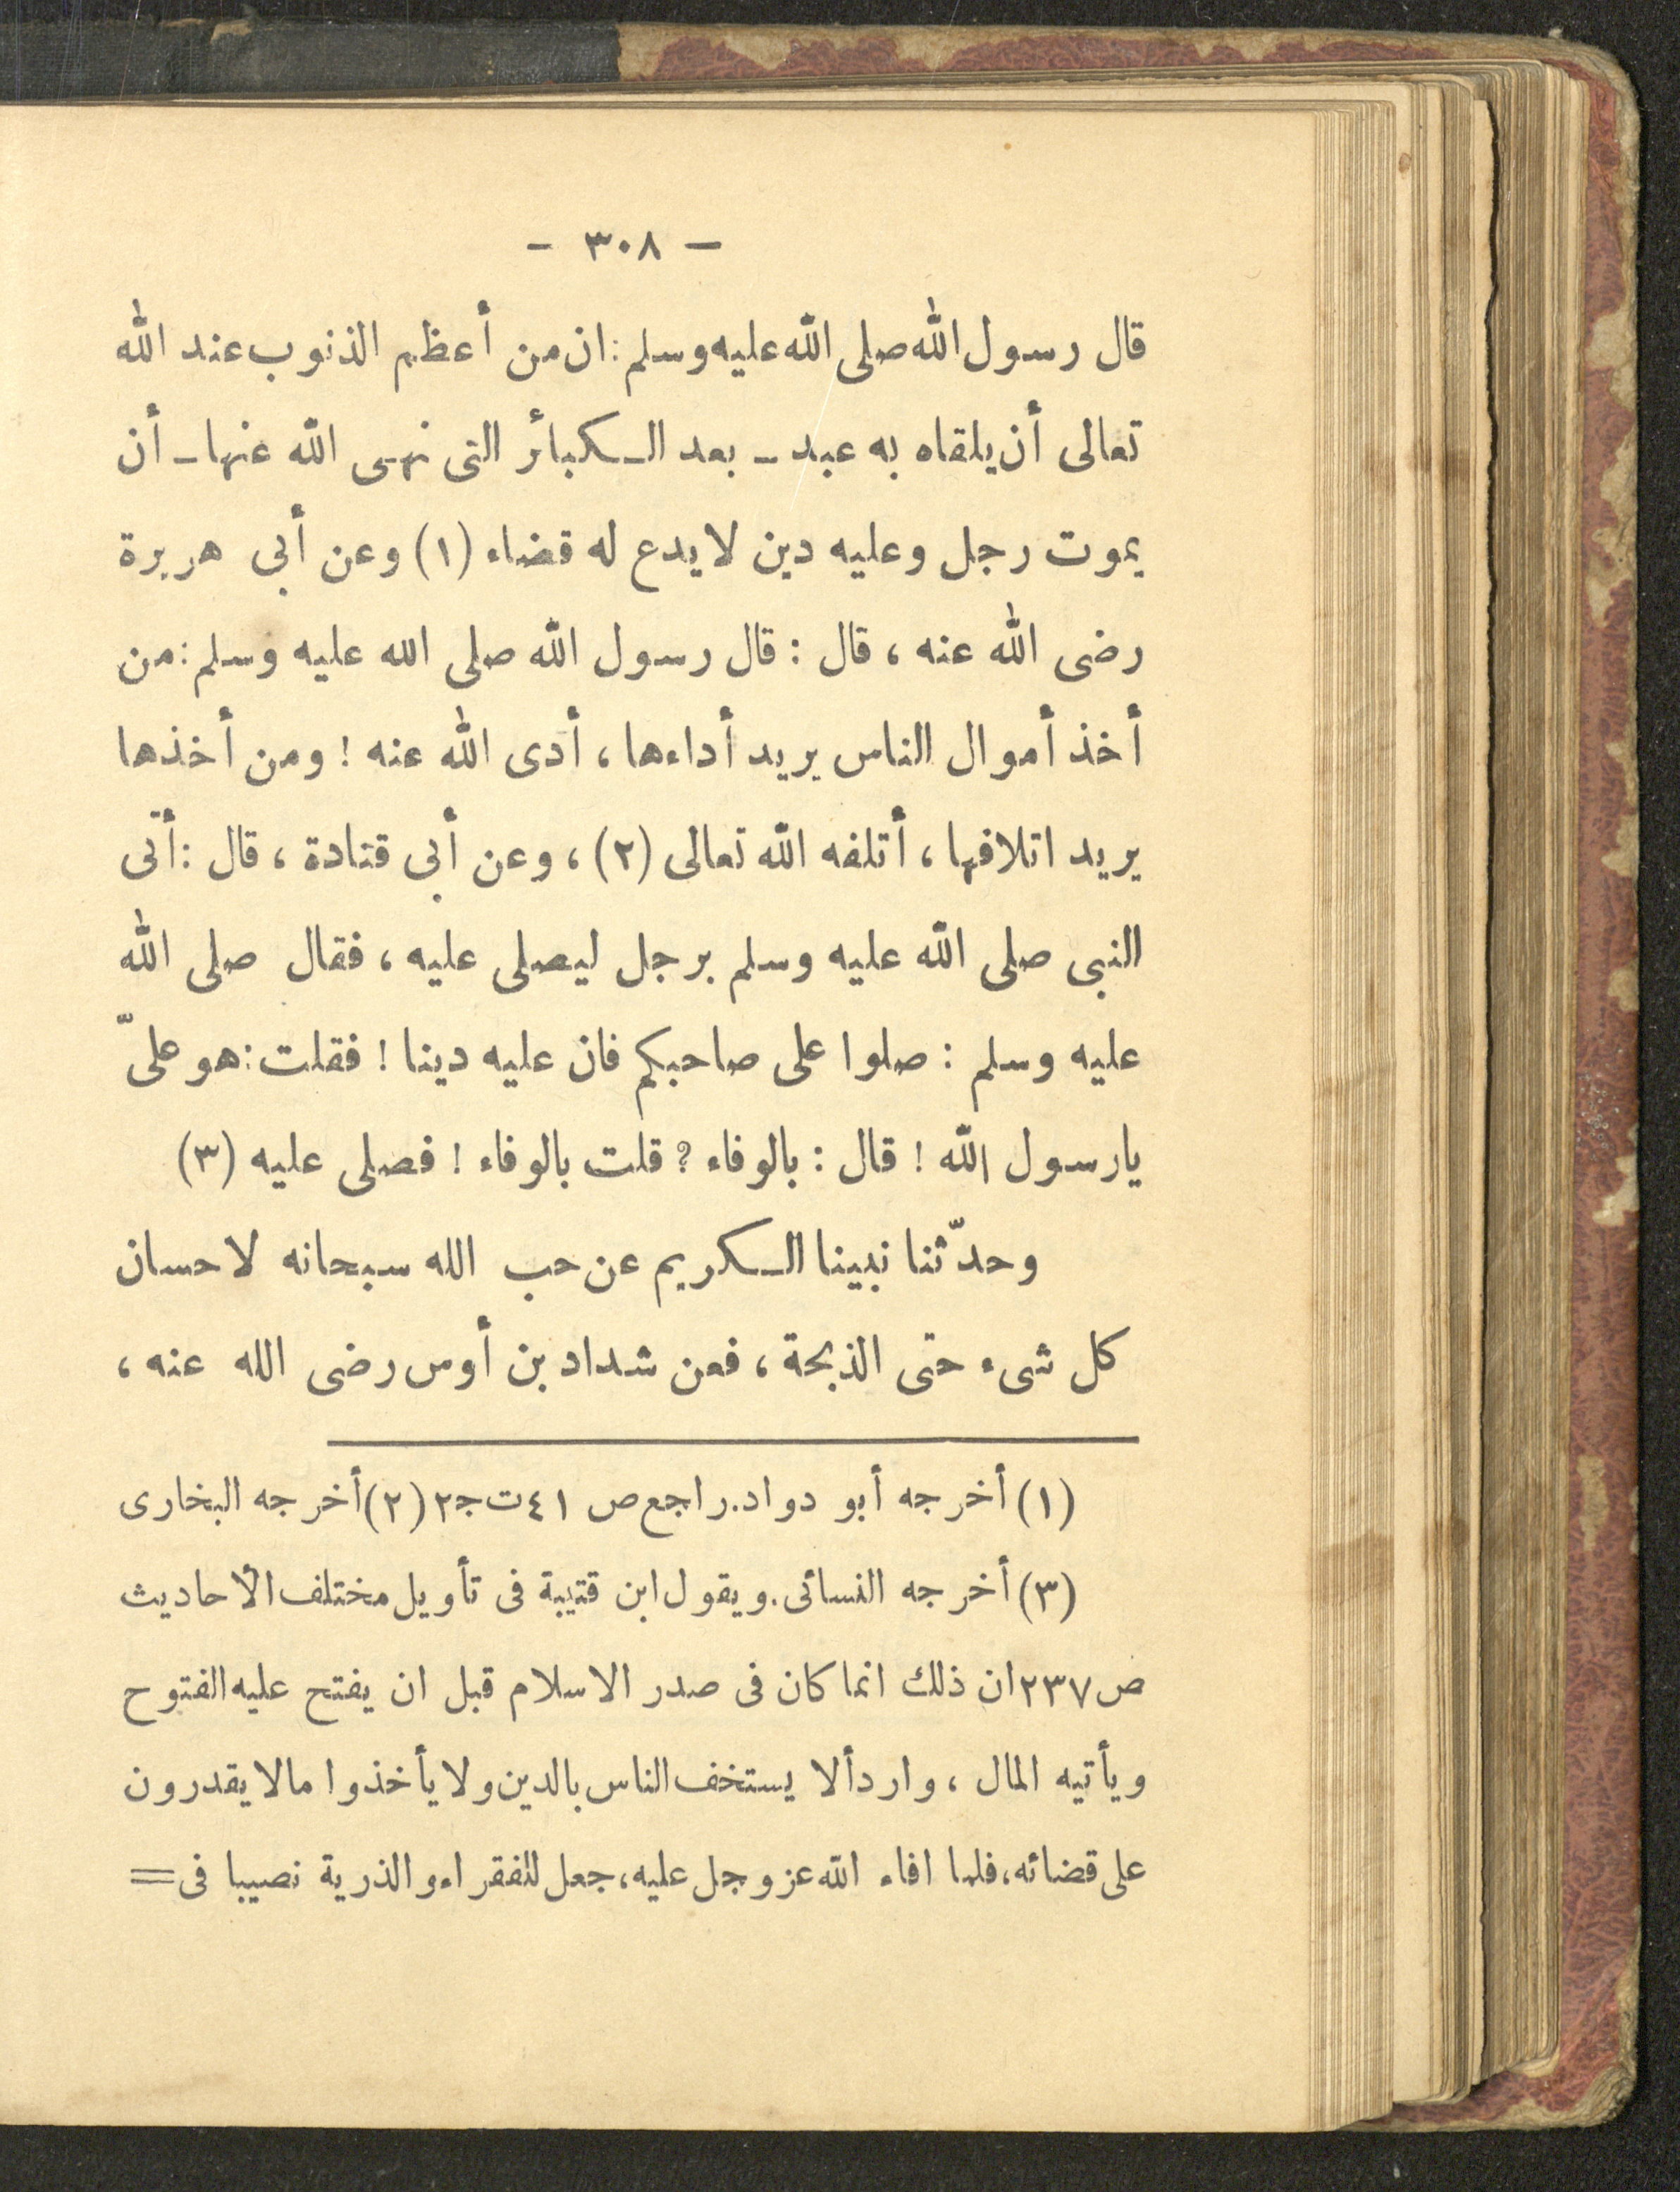 - ٣٠٨ -
قال رسول الله صلى الله عليه وسلم : ان من أعظم الذنوب عند الله
تعالى أن يلقاه به عبد - بعد الكبائر التى نهى الله عنها - أن
يموت رجل وعليه دين لا يدع له قضاء (١) وعن أبى هريرة
رضى الله عنه ، قال : قال رسول الله صلى الله عليه وسلم : من
أخذ أموال الناس يريد أداءها ، أدى الله عنه ! ومن أخذها
يريد اتلافها ، أتلفه الله تعالى (٢) ، وعن أبى قتادة ، قال : أتى
النبى صلى الله عليه وسلم برجل ليصلى عليه ، فقال صلى الله
عليه وسلم : صلوا على صاحبكم فان عليه دينا ! فقلت : هو علىّ
يارسول الله ! قال : بالوفاء ؟ قلت بالوفاء ! فصلى عليه (٣)
وحدّثنا نبينا الكريم عن حب الله سبحانه لاحسان
كل شىء حتى الذبحة ، فعن شداد بن أوس رضى الله عنه ،
(١) أخرجه أبو دواد . راجع ص ٤١ ت ج٢ (٢) أخرجه البخارى
(٣) أخرجه النسائى . ويقول ابن قتيبة فى تأويل مختلف الأحاديث
ص ٢٣٧ ان ذلك انما كان فى صدر الاسلام قبل ان يفتح عليه الفتوح
ويأتيه المال ، واراد ألا يستخف الناس بالدين ولا يأخذوا مالا يقدرون
على قضائه ، فلما افاء الله عز وجل عليه ، جعل للفقراء والذرية نصيبا فى =